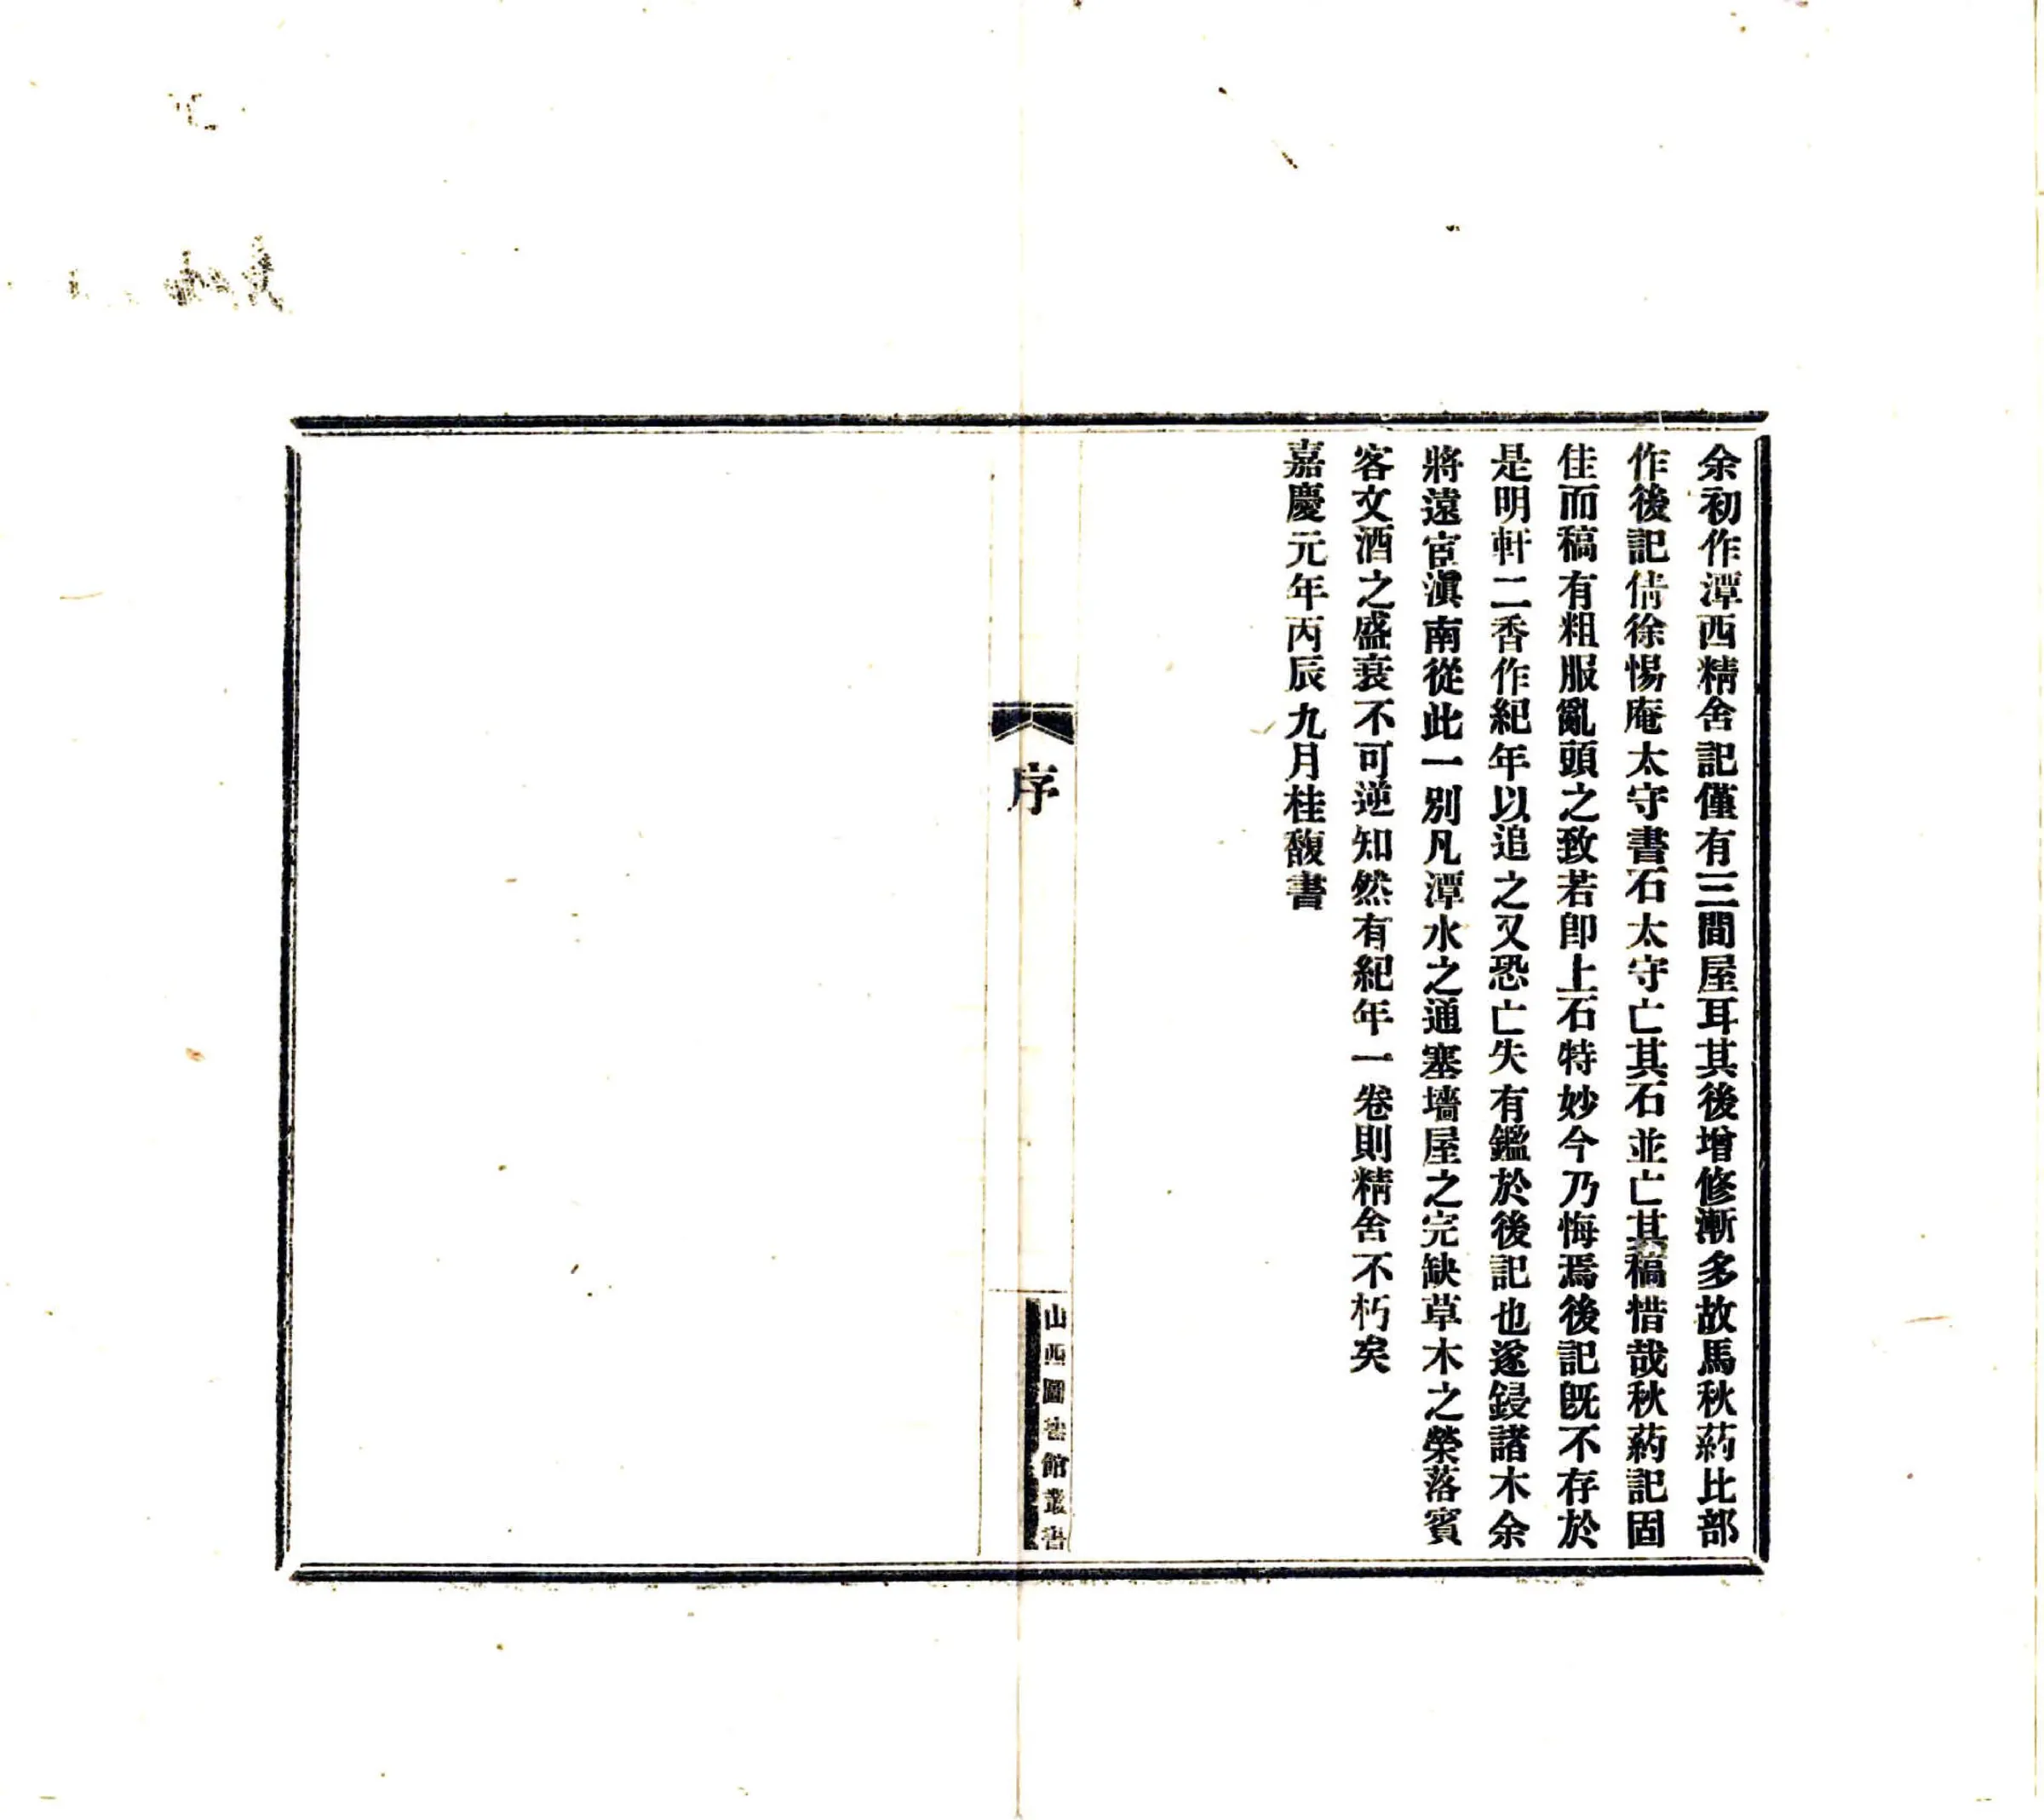 余初作潭西精舍記僅有三間屋耳其後增修漸多故馬秋葯比部
作後記倩徐惕庵太守書石太守亡其石並亡其稿惜哉秋葯記固
佳而稿有粗服亂頭之致若卽上石特妙今乃悔焉後記旣不存於
是明軒二香作紀年以追之又恐亡失有鑑於後記也遂鋟諸木余
將遠宦滇南從此一別凡潭水之通塞墻屋之完缺草木之榮落賓
客文酒之盛衰不可逆知然有紀年一卷則精舍不朽矣
嘉慶元年丙辰九月桂馥書
序
山西圖書館叢書